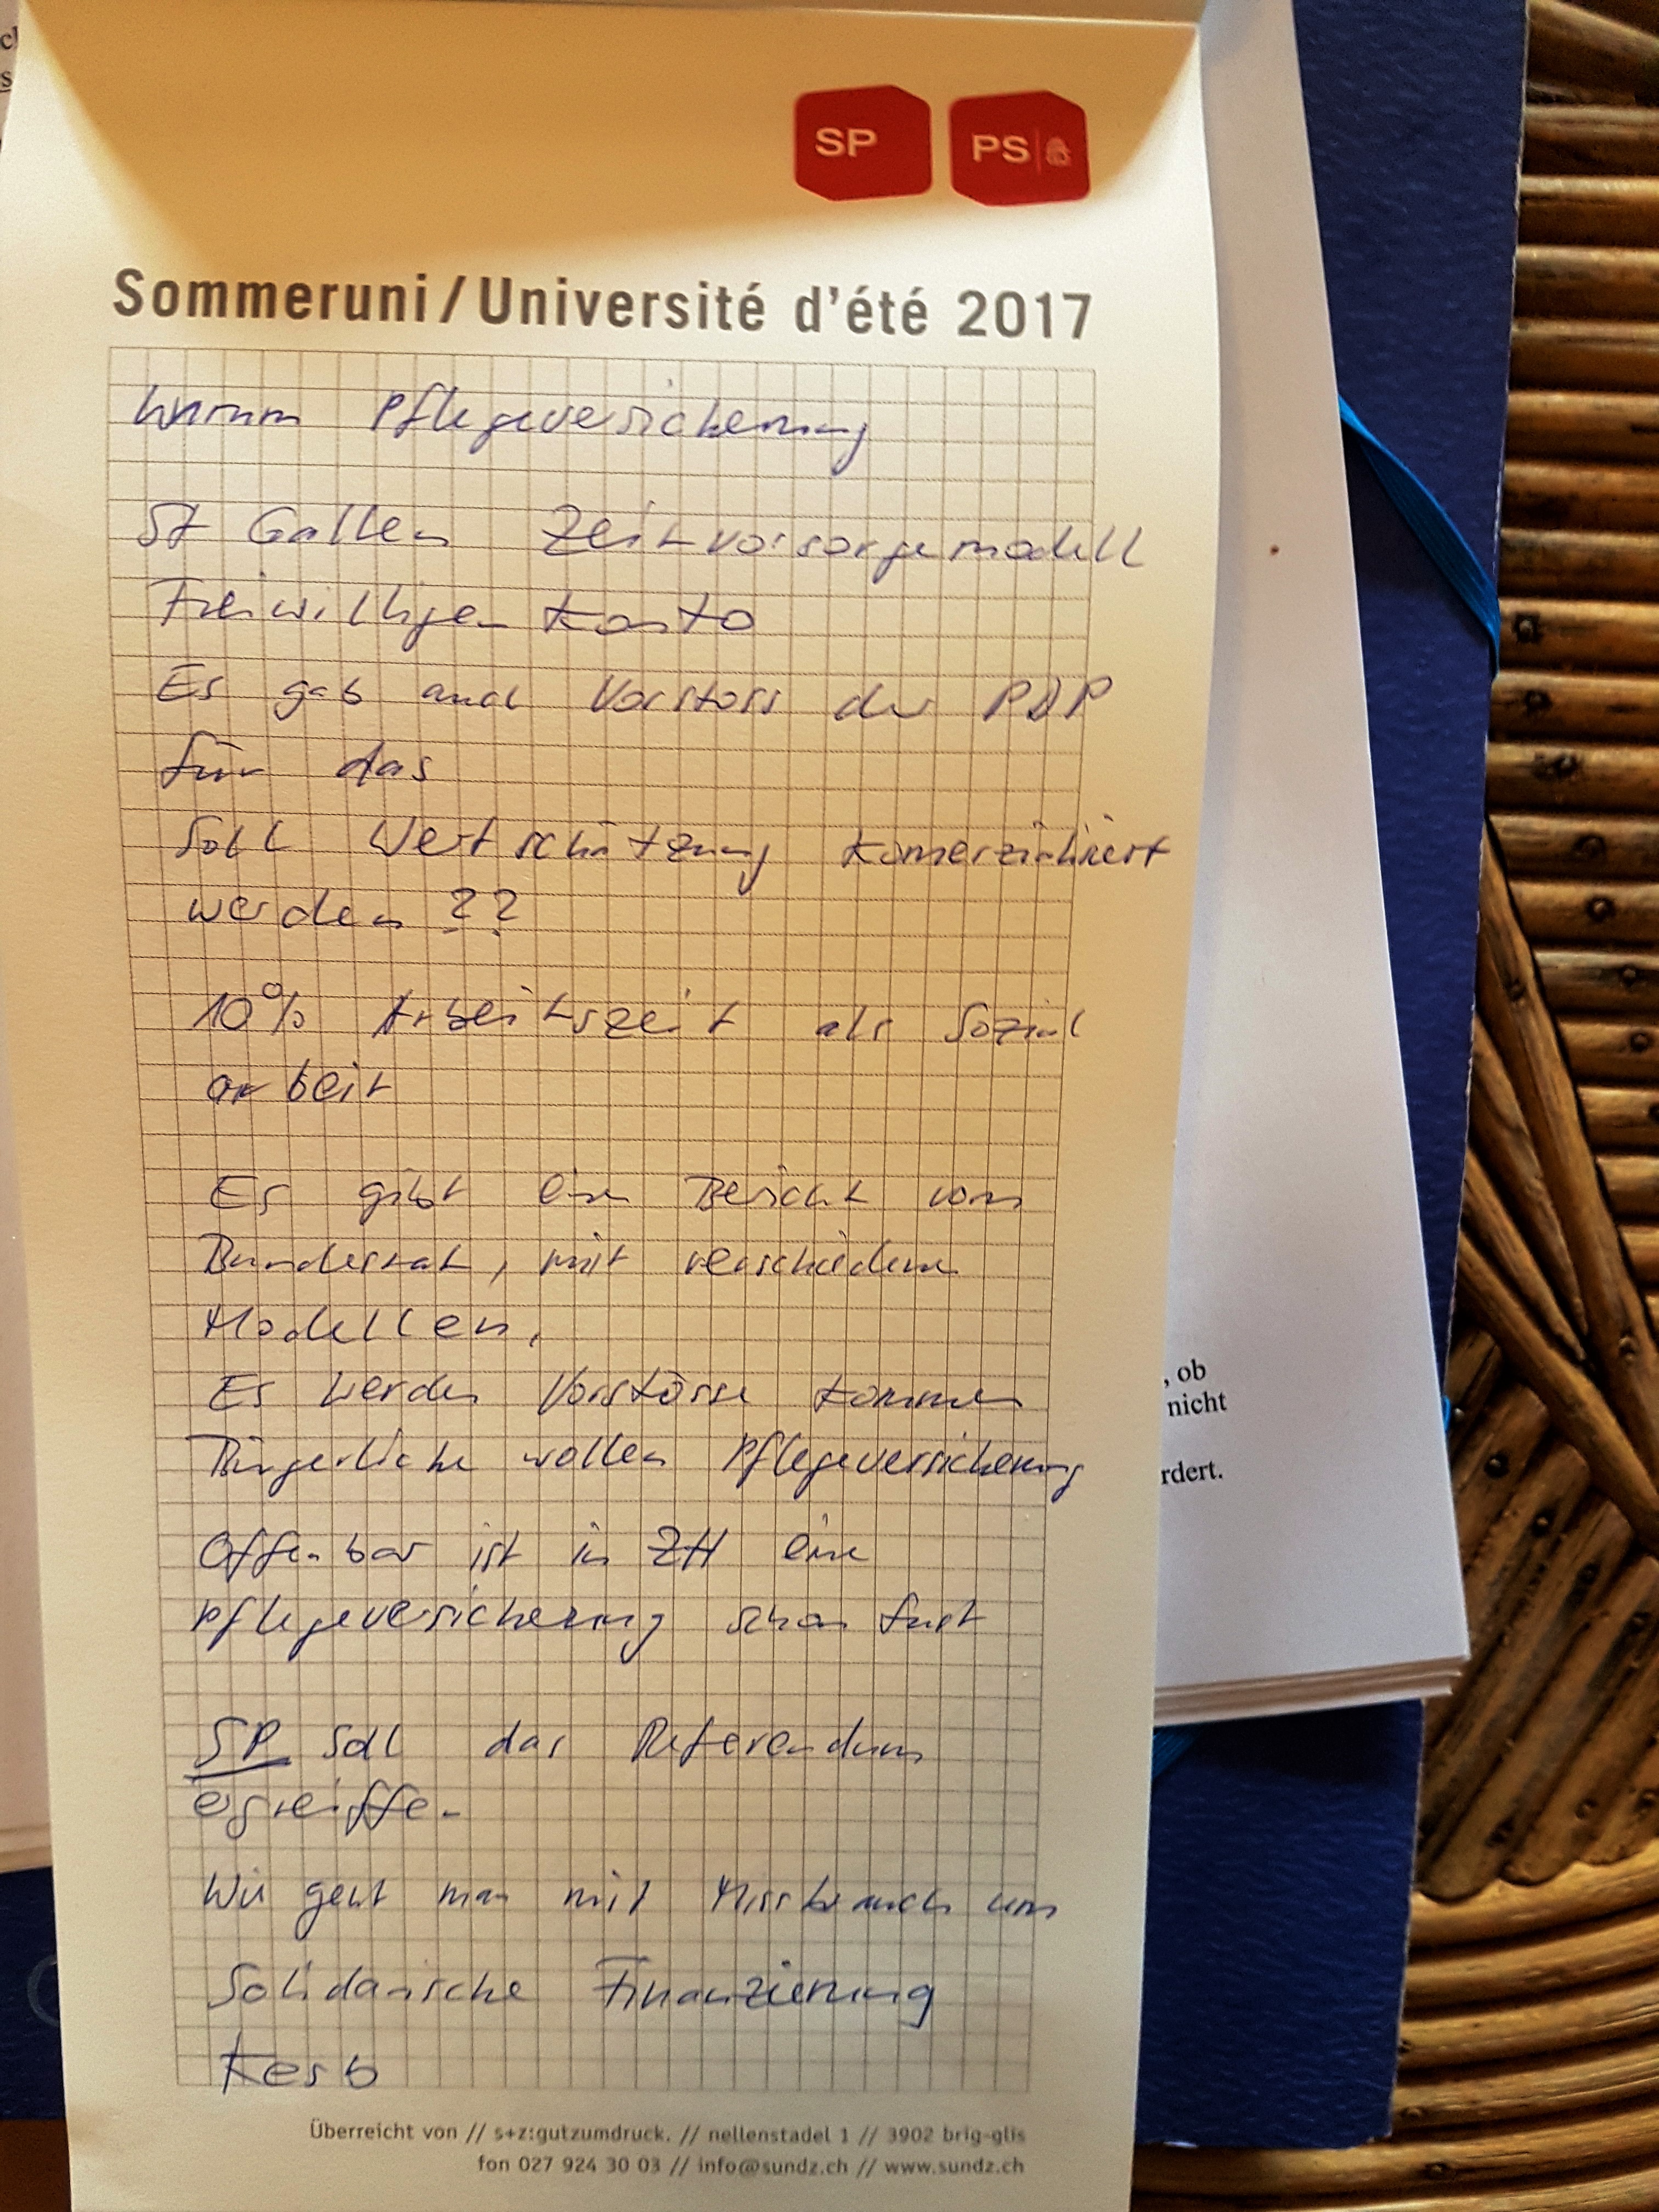 SP PS
Sommeruni / Université d'été 2017
Warum Pflegeversicherung
St Gallen Zeitvorsorgemodell
Freiwilligen Konto
Es gab auch Vorstoss der
für das
Soll Wertschätzung
werden ??
10% Arbeitszeit als Sozial
arbeit
Es gibt ein Bericht vom
Bundesrat, mit verschiedene
Modellen.
Es werden Vorstösse kommen
Bürgerliche wollen Pflegeversicherung
Offenbar ist in ZH eine
pflegeversicherung schon fast
SP soll das Referendum
ergreiffen
Wie geht man mit Missbrauch um
Solidarische Finanzierung
Kesb
Überreicht von // s+z:gutzumdruck. // nellenstadel 1 // 3902 brig-glis
fon 027 924 30 03 // info@sundz.ch // www.sundz.ch
, ob
nicht
rdert.